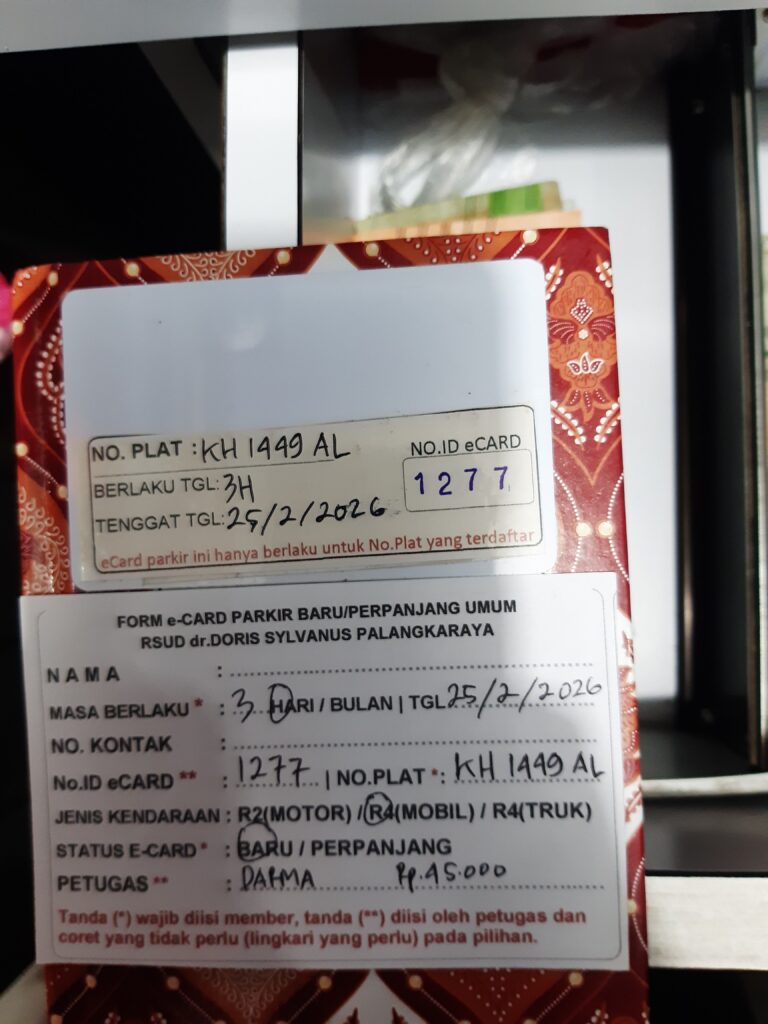 NO. PLAT : KH 1449 AL
NO.ID eCARD
1277
BERLAKU TGL: 3H
TENGGAT TGL: 25/2/2026
eCard parkir ini hanya berlaku untuk No.Plat yang terdaftar
FORM e-CARD PARKIR BARU/PERPANJANG UMUM
RSUD dr.DORIS SYLVANUS PALANGKARAYA
NAMA :
MASA BERLAKU * : 3 HARI / BULAN | TGL 25/2/2026
NO. KONTAK :
No.ID eCARD ** : 1277 | NO.PLAT *: KH 1449 AL
JENIS KENDARAAN : R2(MOTOR) / R4(MOBIL) / R4(TRUK)
STATUS E-CARD * : BARU / PERPANJANG
PETUGAS ** : DARMA Rp.45.000
Tanda (*) wajib diisi member, tanda (**) diisi oleh petugas dan
coret yang tidak perlu (lingkari yang perlu) pada pilihan.